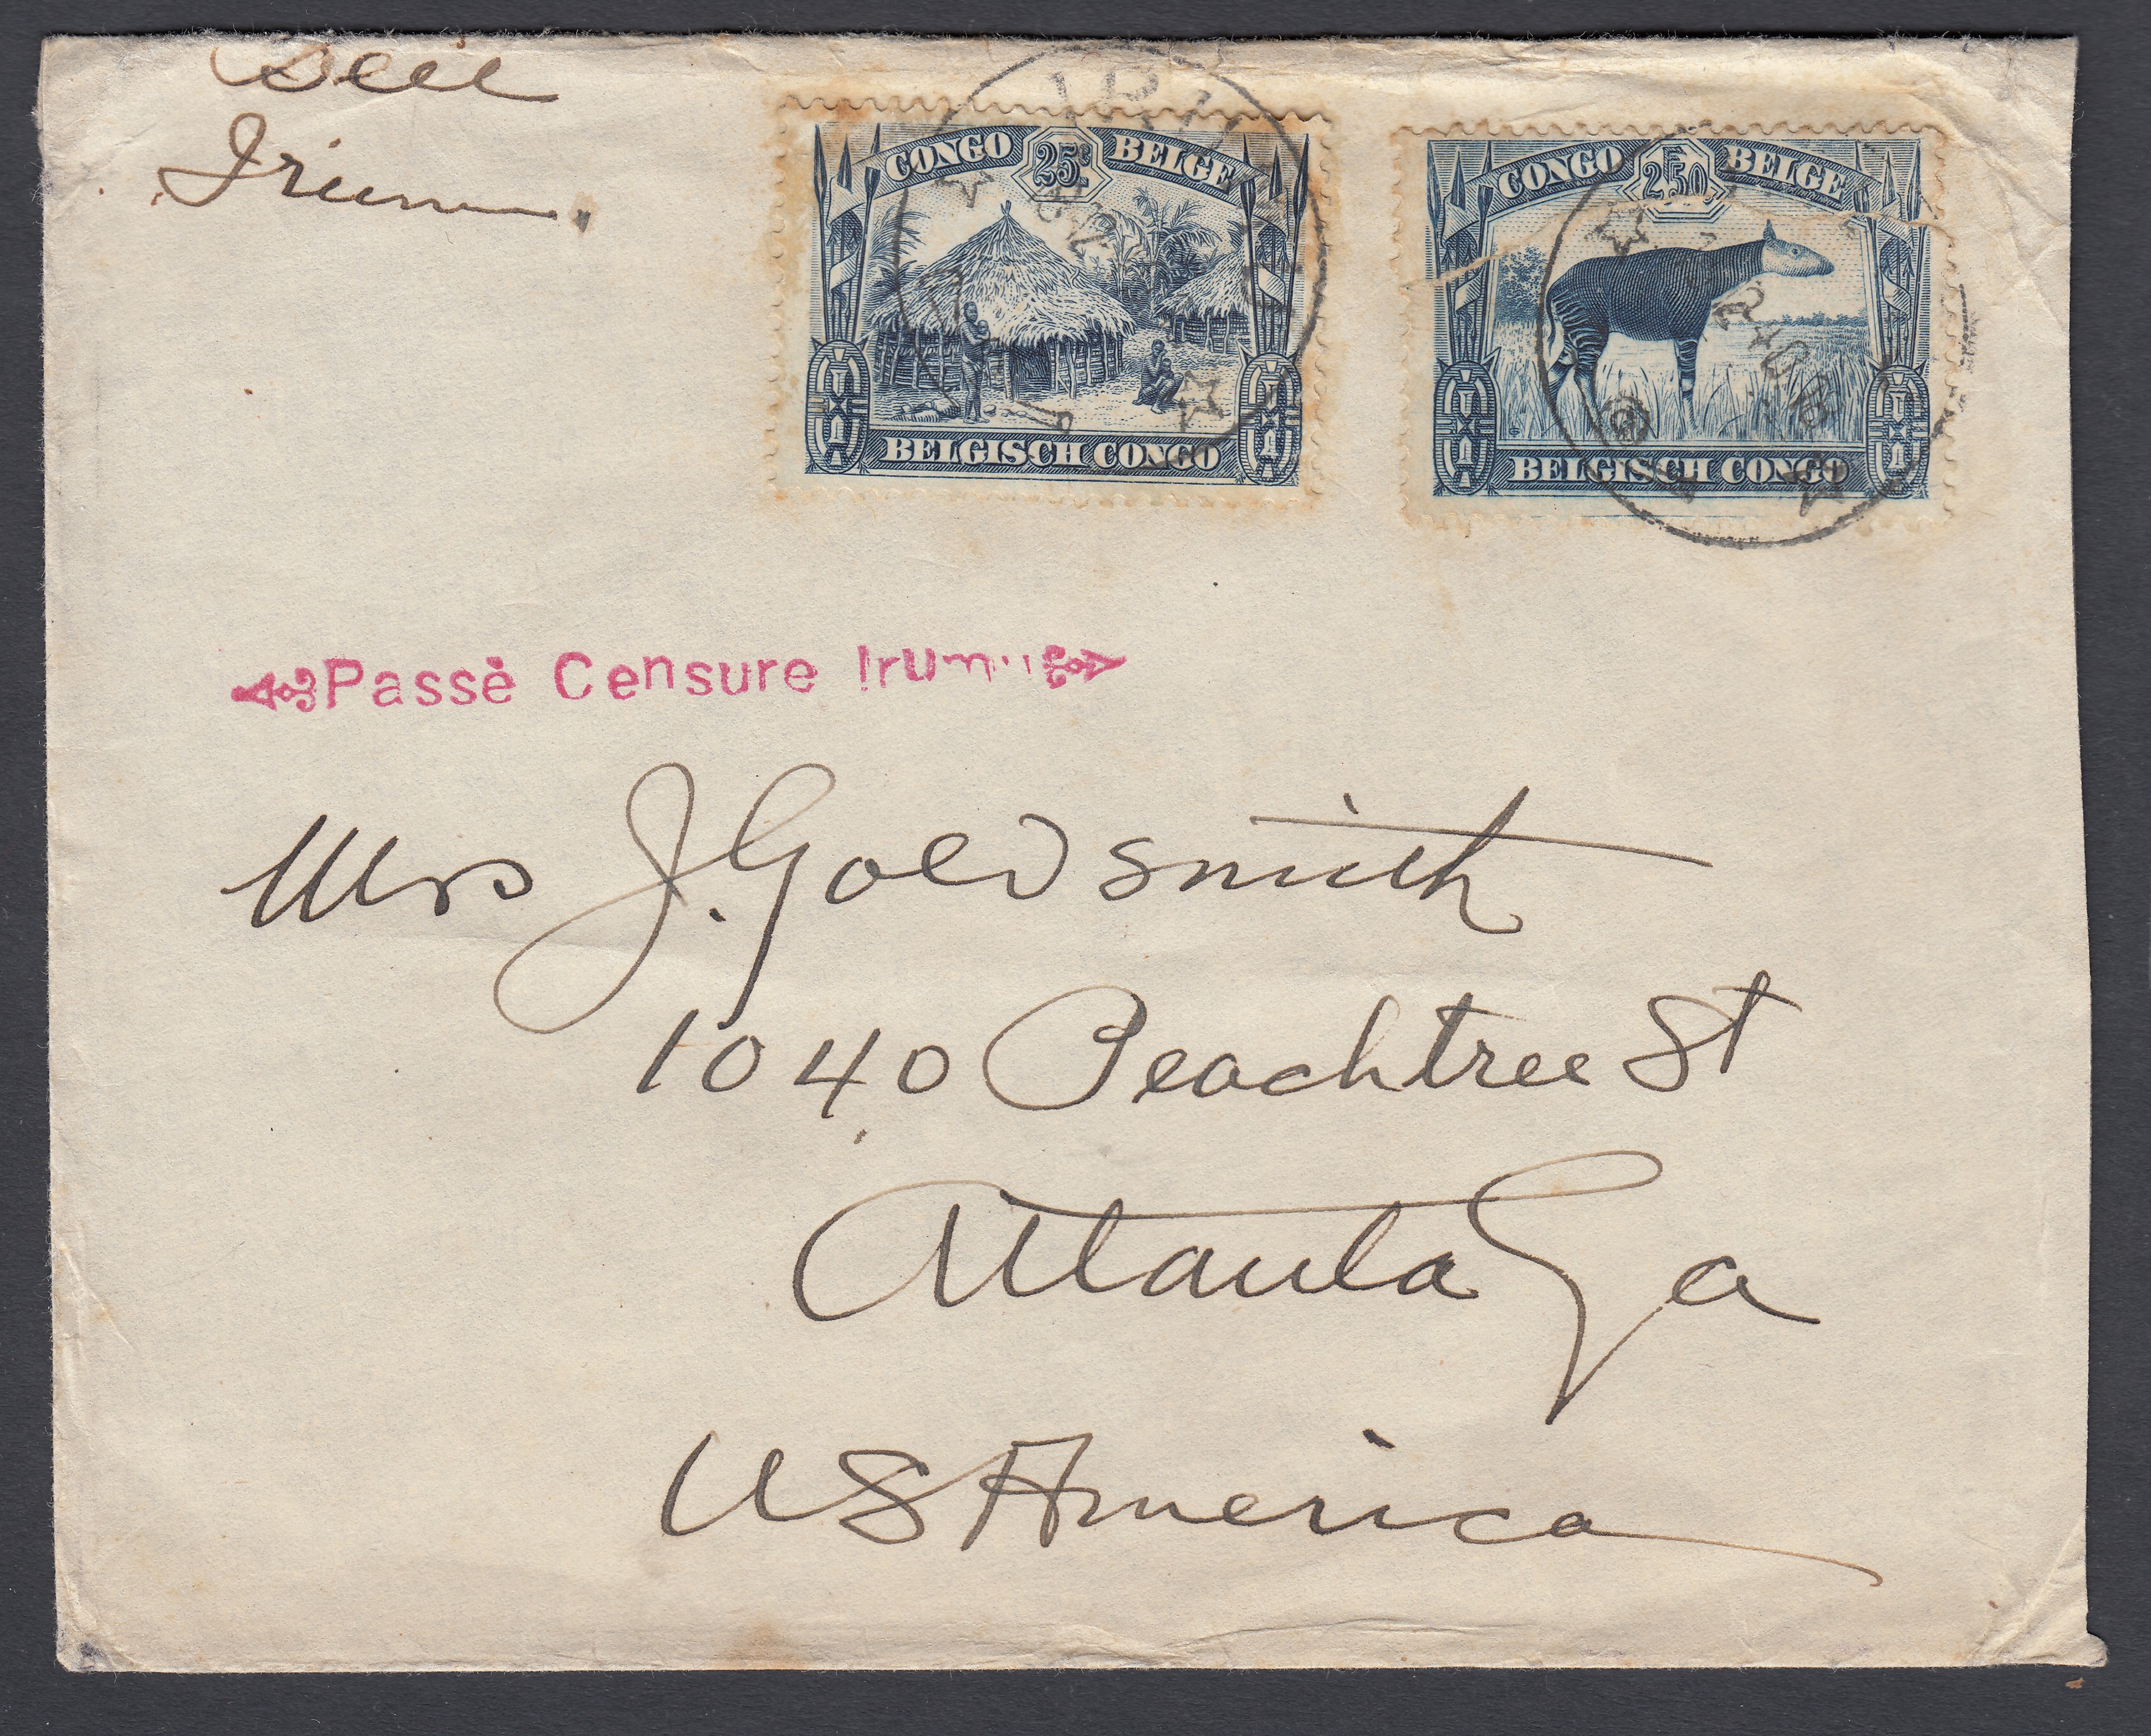 Bell
Irumu.
CONGO 25c BELGE
BELGISCH CONGO
CONGO 2.50 BELGE
BELGISCH CONGO
Passé Censure Irumu
Mrs J. Goldsmith
1040 Peachtree St
Atlanta Ga
US America